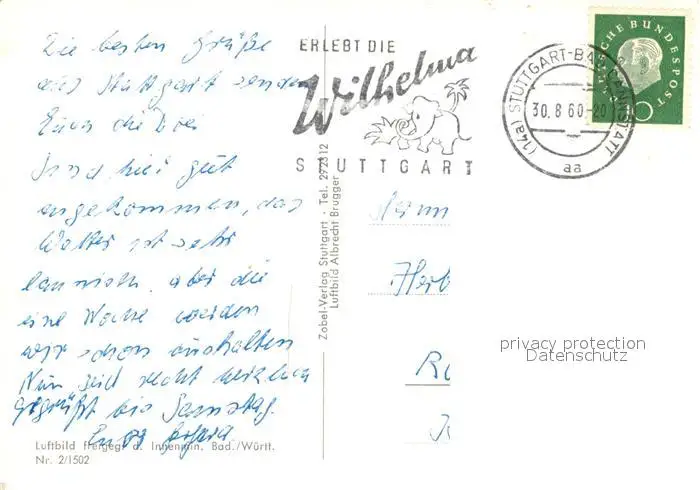 Die besten Grüße
aus Stuttgart senden
Euch die Drei
Sind hier gut
angekommen, das
Wetter ist sehr
launisch, aber die
eine Woche werden
wir schon aushalten
Nun seid recht herzlich
gegrüßt bis Samstag.
ERLEBT DIE
Wilhelma
STUTTGART
(14a) STUTTGART-BAD CANNSTATT
30.8.60-20
aa
DEUTSCHE BUNDESPOST
10
Zobel-Verlag Stuttgart · Tel. 297312
Luftbild Albrecht Brugger
Herrn
Herb
privacy protection
Datenschutz
Luftbild freigeg. d. Innenmin. Bad./Württ.
Nr. 2/1502